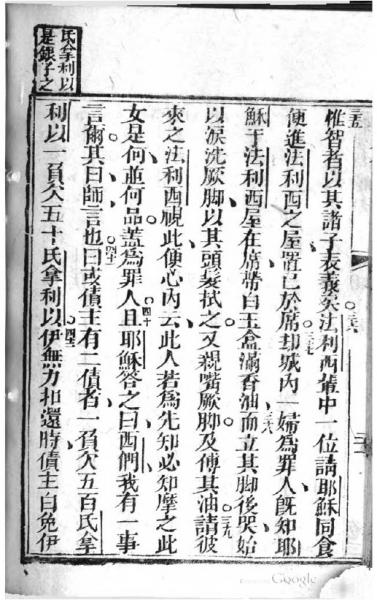 三五惟智者以其諸子表義矣三六法利西輩中一位請耶穌同食
便進法利西之屋置己於席三七卻城內一婦為罪人旣知耶
穌于法利西屋在席帶白玉盒滿香油三八而立其脚後哭始
以淚洗厥脚以其頭髮拭之又親嘴厥脚及傅其油三九請彼
來之法利西視此便心內云此人若為先知必知摩之此
女是何並何品蓋為罪人四十且耶穌答之曰西們我有一事
言爾其曰師言也四一曰或債主有二債者一負欠五百氏拿
利以一負欠五十氏拿利以四二伊無力扣還時債主自免伊
氏拿利以
是銀子之
Google